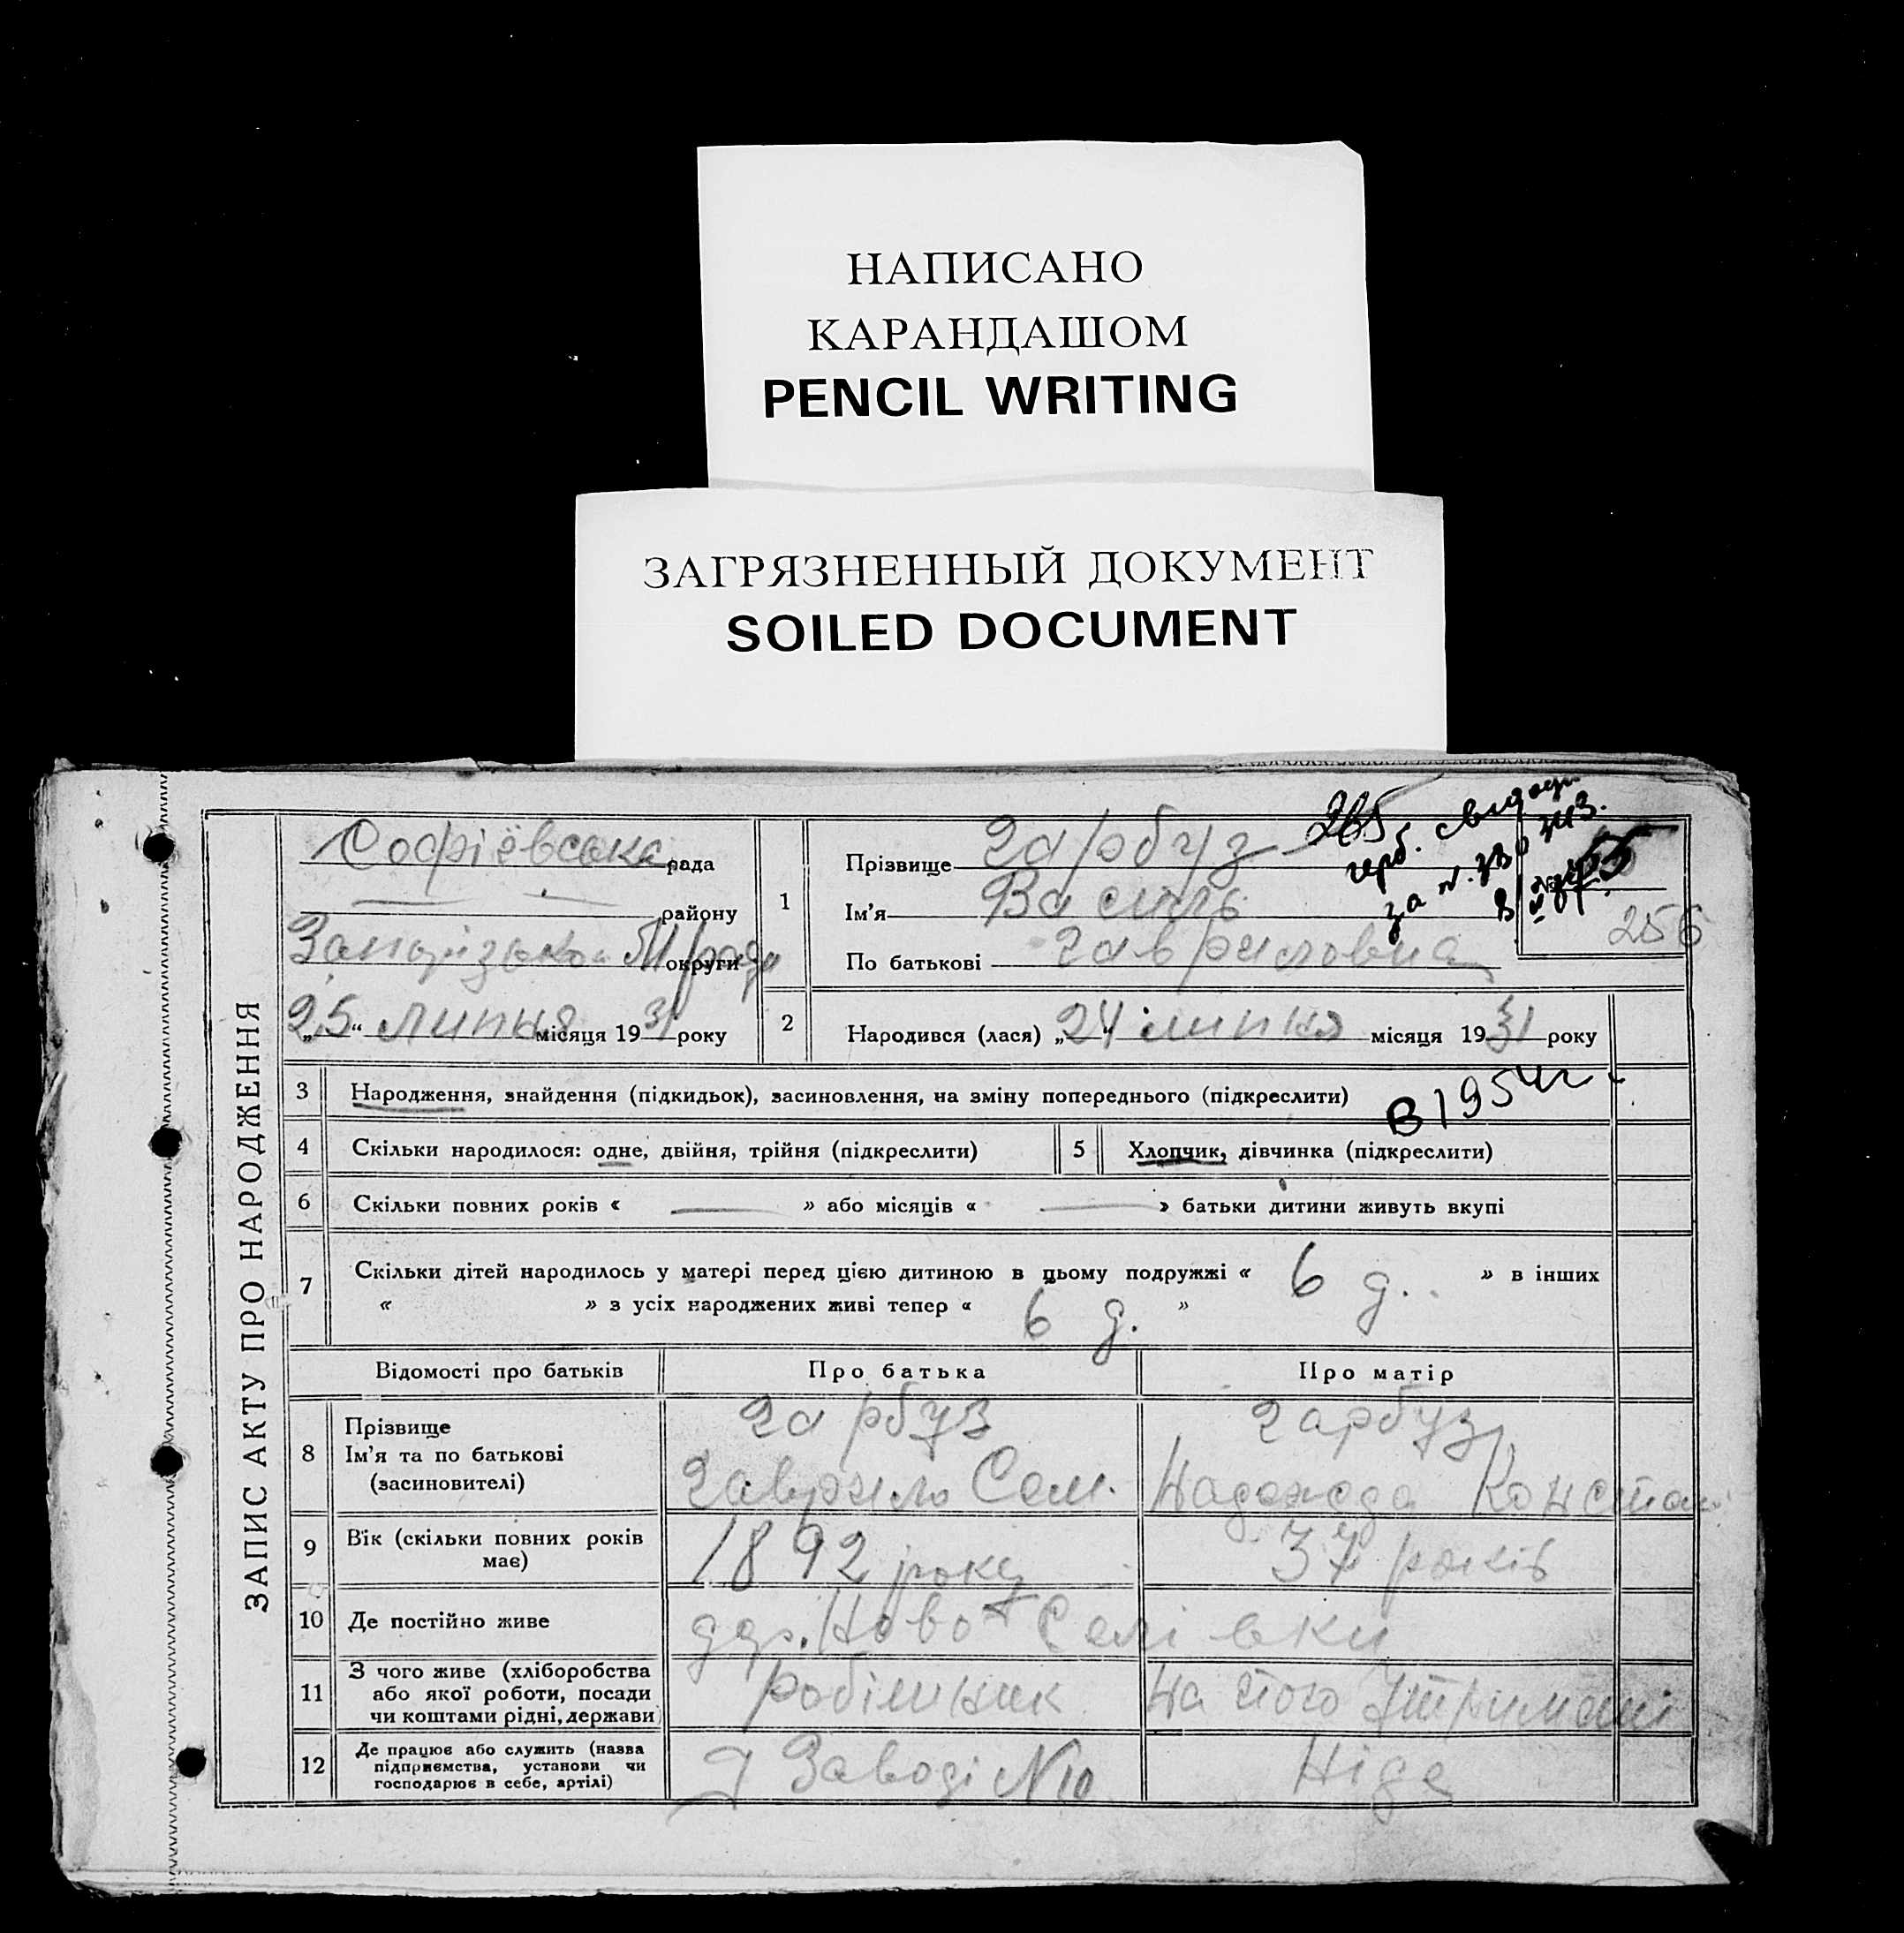 НАПИСАНО
КАРАНДАШОМ
PENCIL WRITING
ЗАГРЯЗНЕННЫЙ ДОКУМЕНТ
SOILED DOCUMENT
ЗАПИС АКТУ ПРО НАРОДЖЕННЯ
Софіёвська рада
району
округи
„25“ липня місяця 1931 року
1
Прізвище Гарбуз
Ім'я Василь
По батькові Гавриловиа
265
герб.
за н.
№
256
2
Народився (лася) „24 липня місяця 1931 року
В 1954 г.
3 Народження, знайдення (підкидьок), засиновлення, на зміну попереднього (підкреслити)
4 Скільки народилося: одне, двійня, трійня (підкреслити)
5 Хлопчик, дівчинка (підкреслити)
6 Скільки повних років « » або місяців « » батьки дитини живуть вкупі
7 Скільки дітей народилось у матері перед цією дитиною в цьому подружжі « 6 д. » в інших
« » з усіх народжених живі тепер « 6 д. »
Відомості про батьків Про батька Про матір
8 Прізвище
Ім'я та по батькові
(засиновителі)
Гарбуз
Гаврило Сем.
Гарбуз
Надежда Констан
9 Вік (скільки повних років
має)
1892 року
37 років
10 Де постійно живе
Ново Селівки
11 З чого живе (хліборобства
або якої роботи, посади
чи коштами рідні, держави)
робітник
на його утриманні
12 Де працює або служить (назва
підприємства, установи чи
господарює в себе, артілі)
У Заводі N10
Ніде